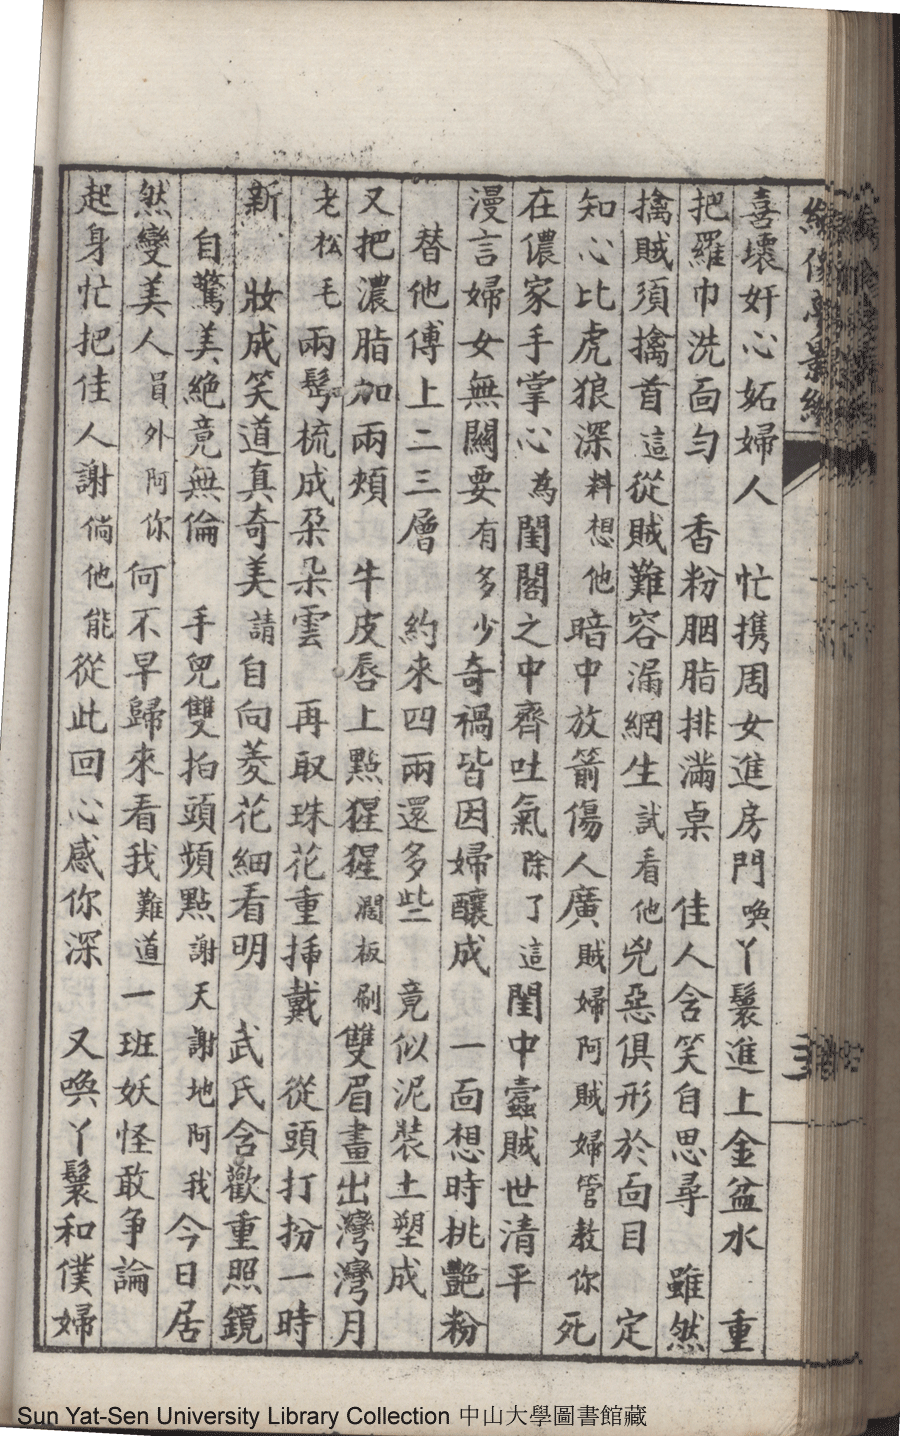 喜壞奸心妬婦人　忙携周女進房門喚丫鬟進上金盆水　重
把羅巾洗面勻　香粉胭脂排滿桌　佳人含笑自思尋　雖然
擒賊須擒首這從賊難容漏網生試看他兇惡俱形於面目　定
知心比虎狼深料想他暗中放箭傷人廣賊婦阿賊婦管教你死
在儂家手掌心為閨閣之中齊吐氣除了這閨中蠹賊世清平
漫言婦女無關要有多少奇禍皆因婦釀成　一面想時挑艷粉
替他傅上二三層　約來四兩還多些　竟似泥裝土塑成
又把濃脂加兩頰　牛皮唇上點猩猩濶板刷雙眉畫出灣灣月
老松毛兩髩梳成朶朶雲　再取珠花重揷戴　從頭打扮一時
新　妝成笑道真奇美請自向菱花細看明　武氏含歡重照鏡
自驚美絕竟無倫　手兒雙拍頭頻點謝天謝地阿我今日居
然變美人員外阿你何不早歸來看我難道一班妖怪敢爭論
起身忙把佳人謝倘他能從此回心感你深　又喚丫鬟和僕婦
Sun Yat-Sen University Library Collection 中山大學圖書館藏